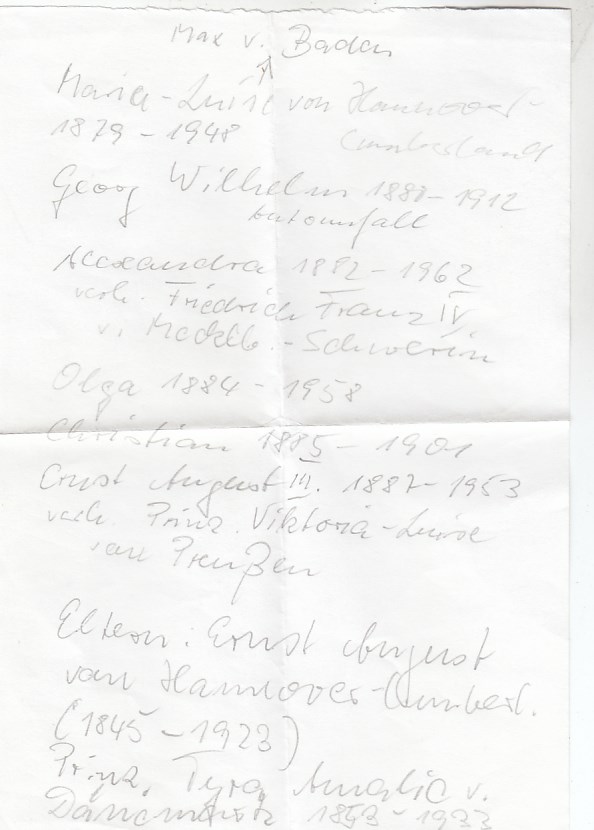 Max v. Baden
Maria-Luise von Hannover-
1879 - 1948 Cumberland
Georg Wilhelm 1880 - 1912
Autounfall
Alexandra 1882 - 1962
verh. Friedrich Franz IV.
v. Mecklb.-Schwerin
Olga 1884 - 1958
Christian 1885 - 1901
Ernst August III. 1887 - 1953
verh. Prinz. Viktoria-Luise
von Preußen
Eltern: Ernst August
von Hannover-Cumberl.
(1845 - 1923)
Prinz. Tyra Amalie v.
Dänemark 1853 - 1933